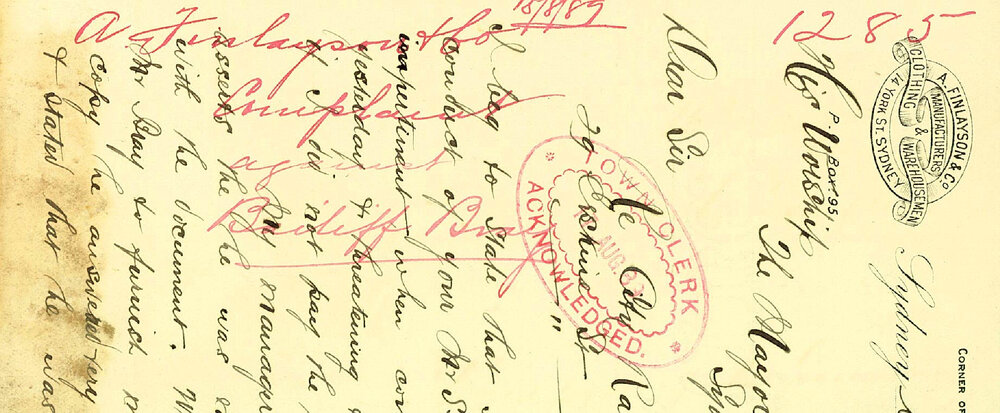 1285
18/8/89
A Finlayson & Co
Complain
against
Bailiff Bray
A. FINLAYSON & Co
MANUFACTURERS
CLOTHING & WAREHOUSEMEN
14 YORK ST. SYDNEY
P. BOX 795.
CORNER OF
Sydney
His Worship
The Mayor
Sy
Dear Sir
Re City Ra
29 Erskine St
TOWN CLERK
AUG. 89
ACKNOWLEDGED.
I beg to state that
conduct of your Mr
impertinent when con
yesterday & threatening
if I did not pay the
assets the he was
with the document.
My Manager
Mr Bray to furnish
copy he answered very
& stated that he was